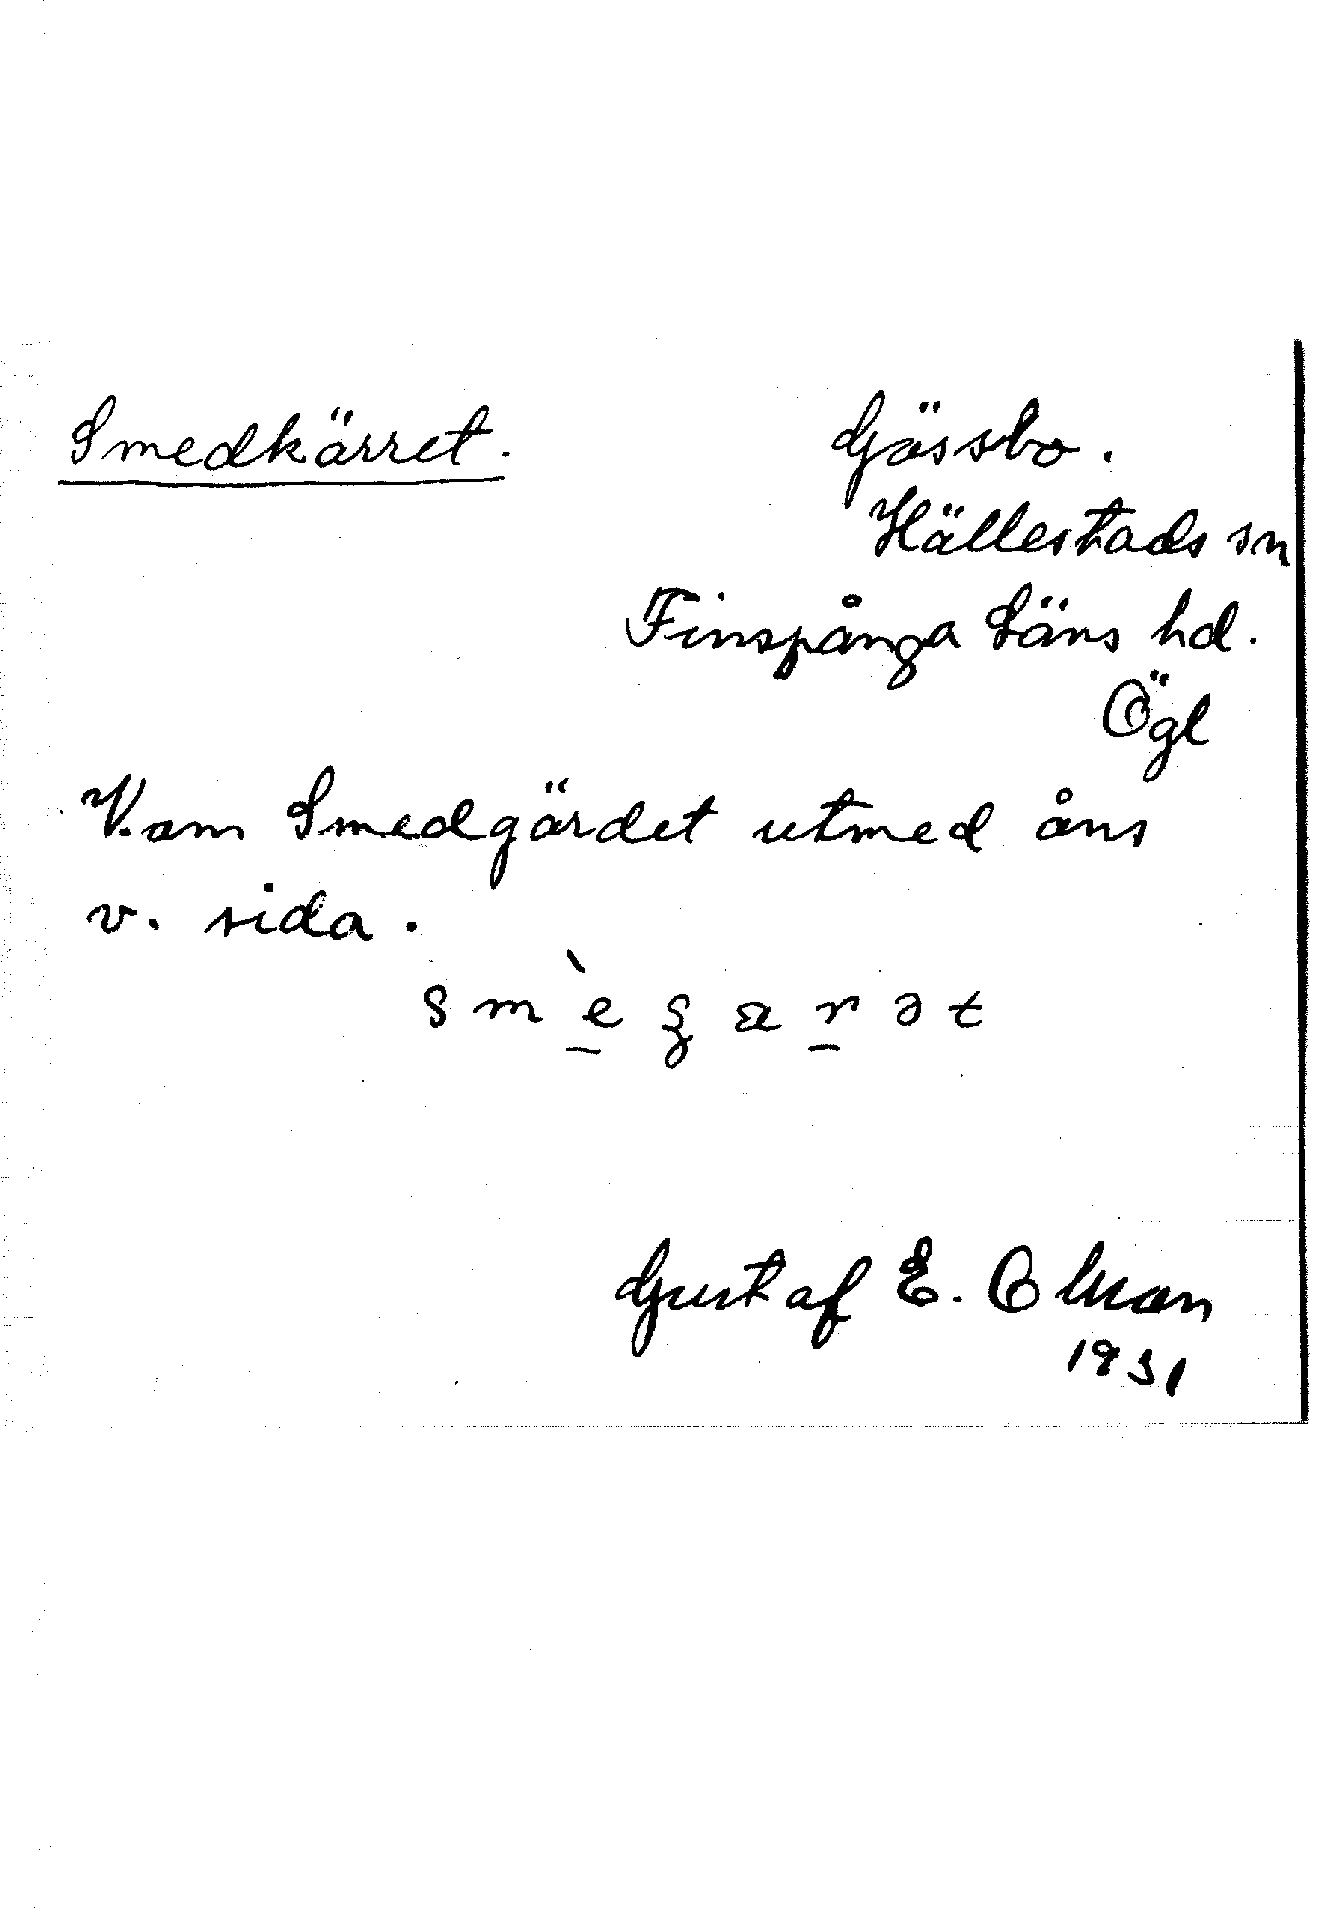 Smedkärret.
Gässbo.
Hällestads sn
Finspånga Läns hd.
Ögl
V. om Smedgärdet utmed åns
v. sida.
Gustaf E. Olsson
1931